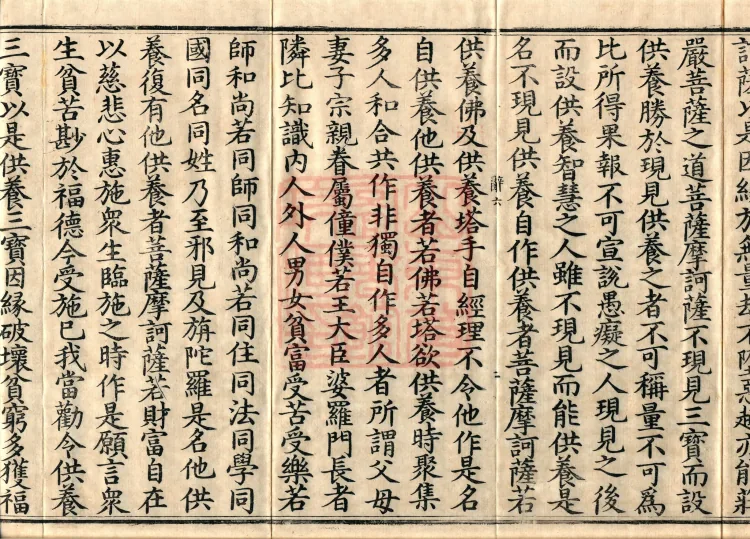 亦能莊
嚴菩薩之道菩薩摩訶薩不現見三寶而設
供養勝於現見供養之者不可稱量不可爲
比所得果報不可宣說愚癡之人現見之後
而設供養智慧之人雖不現見而能供養是
名不現見供養自作供養者菩薩摩訶薩若
辭六 二
供養佛及供養塔手自經理不令他作是名
自供養他供養者若佛若塔欲供養時聚集
多人和合共作非獨自作多人者所謂父母
妻子宗親眷屬僮僕若王大臣婆羅門長者
隣比知識內人外人男女貧富受苦受樂若
師和尚若同師同和尚若同住同法同學同
國同名同姓乃至邪見及旃陀羅是名他供
養復有他供養者菩薩摩訶薩若財富自在
以慈悲心惠施衆生臨施之時作是願言衆
生貧苦尠於福德今受施已我當勸令供養
三寶以是供養三寶因緣破壞貧窮多獲福